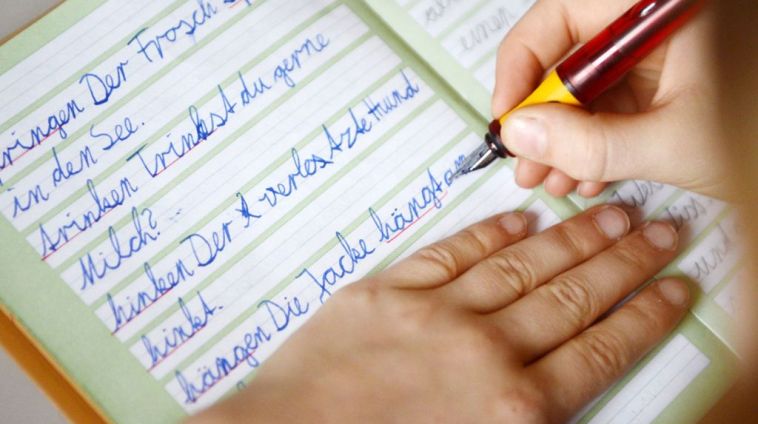 ringen Der Frosch sp
in den See.
trinken Trinkst du gerne
Milch?
hinken Der verletzte Hund
hinkt.
hängen Die Jacke hängt am
einen
und